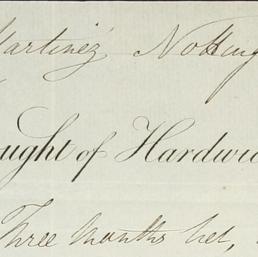 Martinez Notting
ught of Hardwi
Three months net,